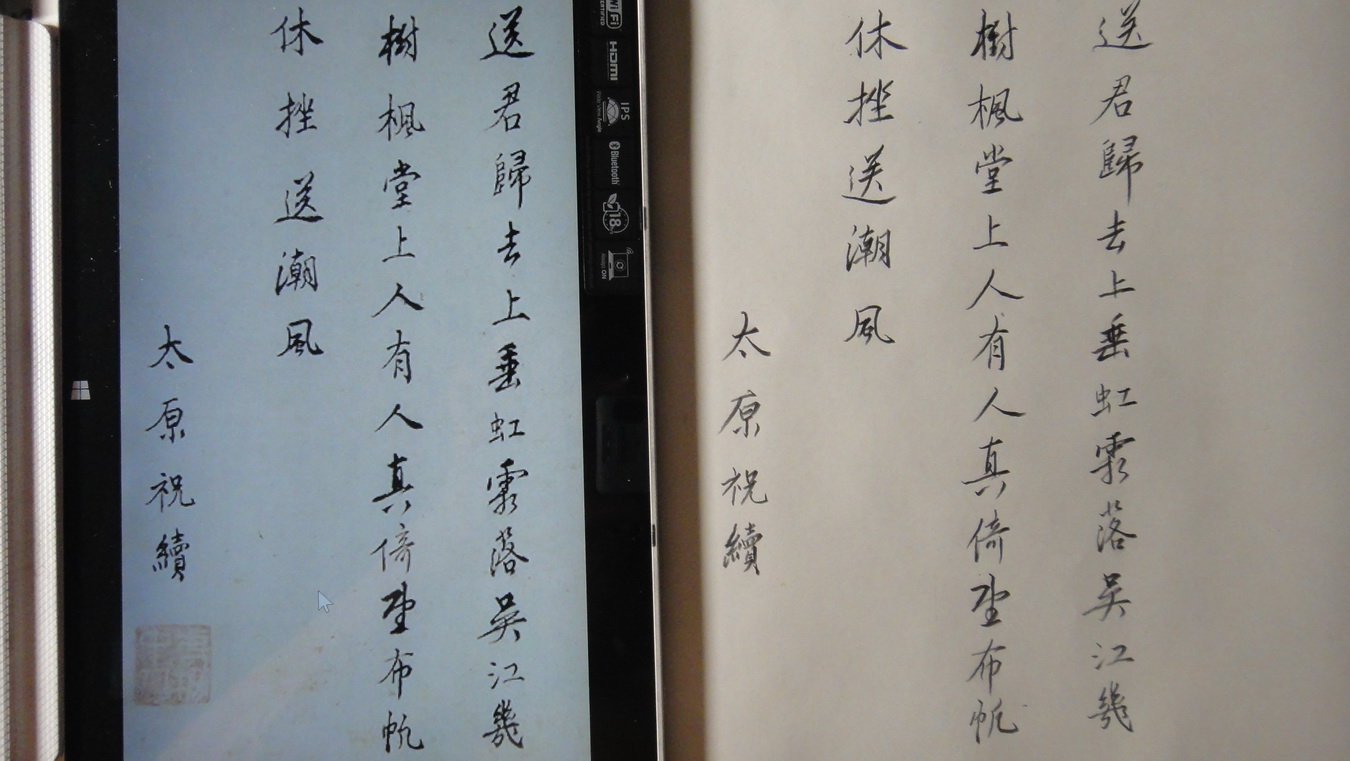 送君歸去上垂虹霜落吳江幾
樹楓堂上人有人真倚望布帆
休挫送潮風
太原祝續
Wi Fi
HDMI
IPS
Bluetooth
18
送君歸去上垂虹霜落吳江幾
樹楓堂上人有人真倚望布帆
休挫送潮風
太原祝續